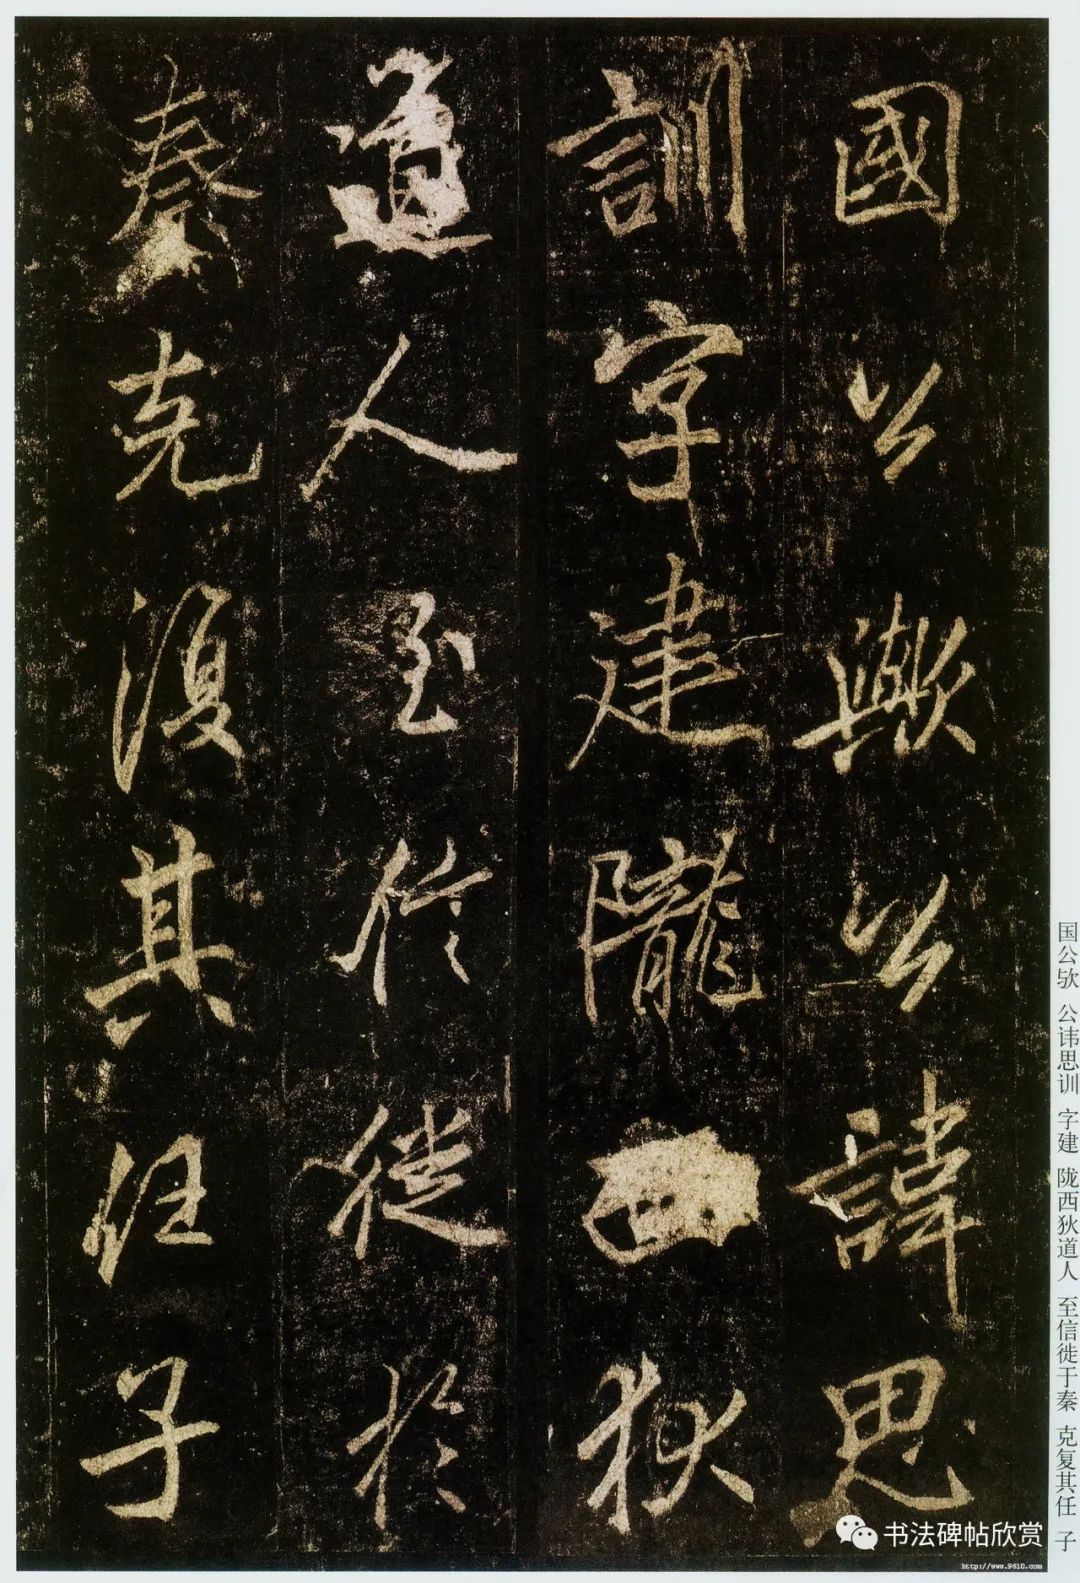 國公歟公諱思
訓字建隴西狄
道人至信徙於
秦克復其任子
国公欤 公讳思训 字建 陇西狄道人 至信徙于秦 克复其任 子
书法碑帖欣赏
http://www.9610.com